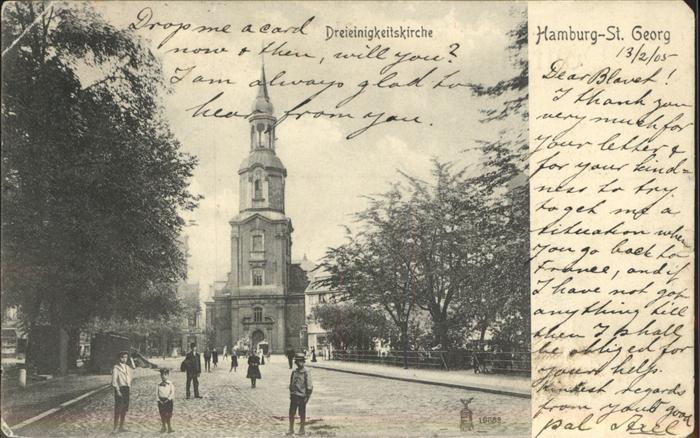 Drop me a card
now & then, will you?
I am always glad to
hear from you.
Dreieinigkeitskirche
Hamburg-St. Georg
13/2/05
Dear Blavet!
I thank you
very much for
your letter &
for your kind=
ness to try
to get me a
situation when
you go back to
France, and if
I have not got
anything till
then I shall
be obliged for
your help.
Kindest regards
from your good
pal Axel